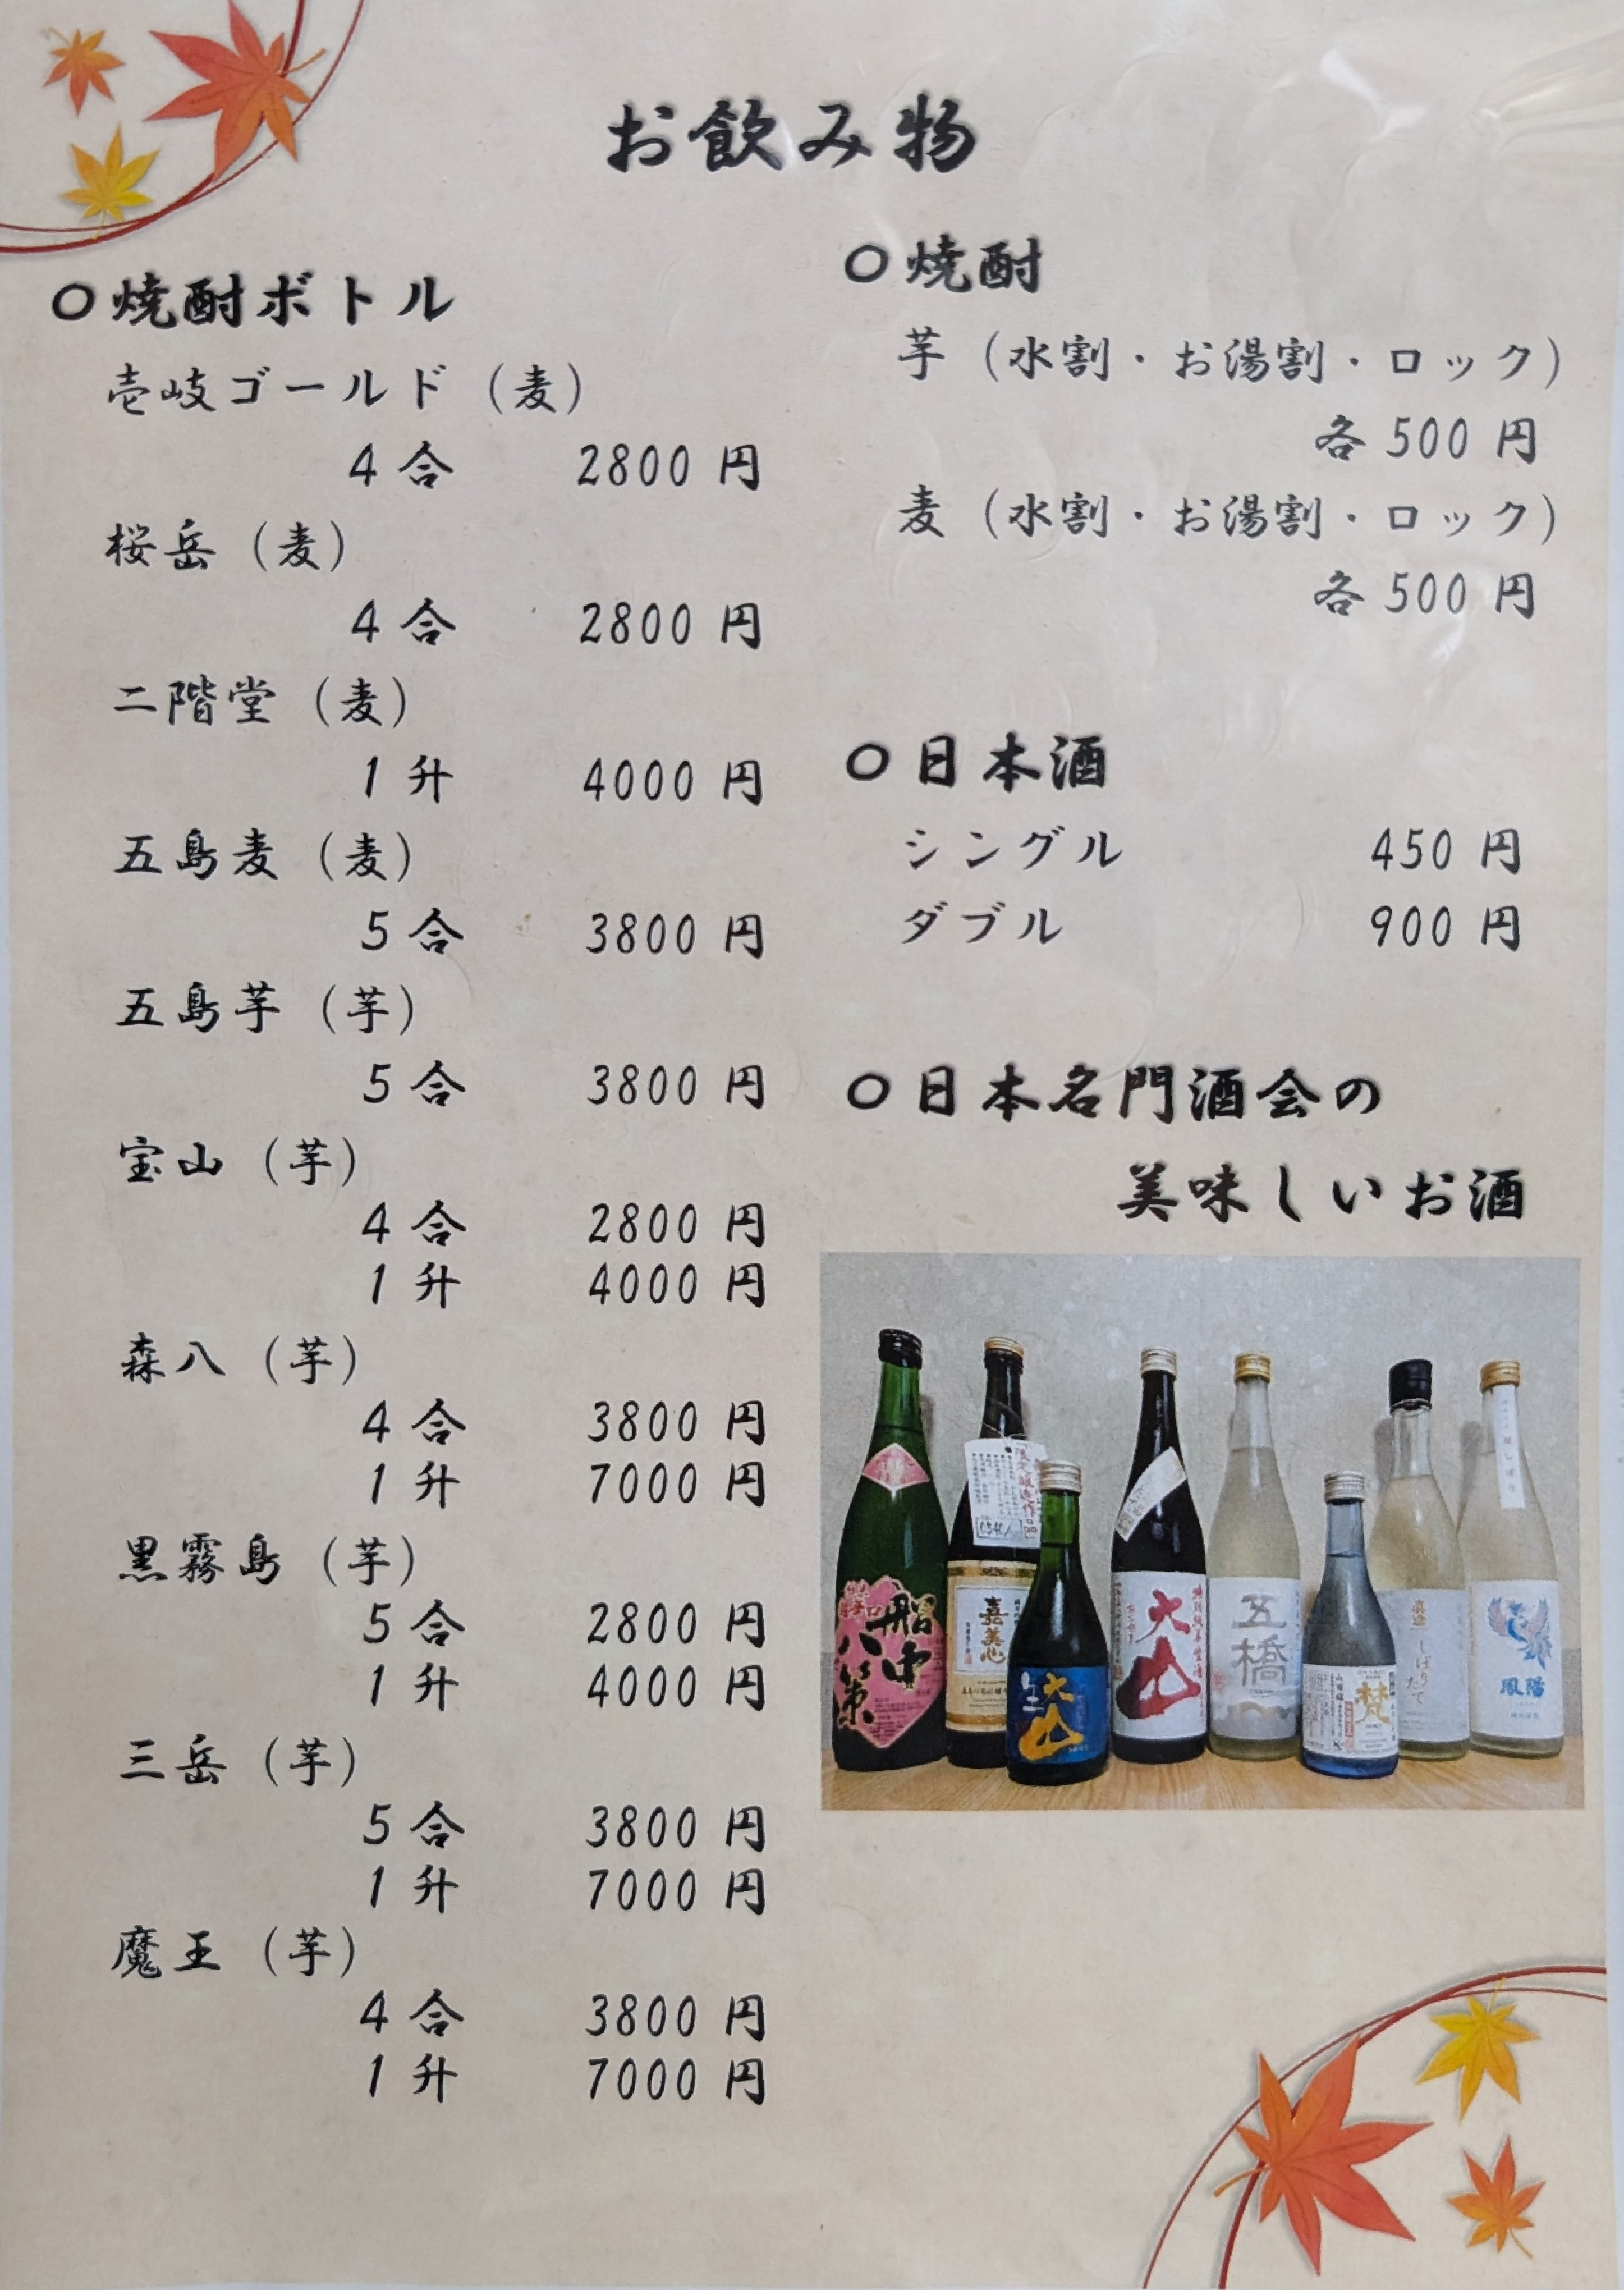 お飲み物
○焼酎ボトル
壱岐ゴールド（麦）
4合 2800円
桜岳（麦）
4合 2800円
二階堂（麦）
1升 4000円
五島麦（麦）
5合 3800円
五島芋（芋）
5合 3800円
宝山（芋）
4合 2800円
1升 4000円
森八（芋）
4合 3800円
1升 7000円
黒霧島（芋）
5合 2800円
1升 4000円
三岳（芋）
5合 3800円
1升 7000円
魔王（芋）
4合 3800円
1升 7000円
○焼酎
芋（水割・お湯割・ロック）
各500円
麦（水割・お湯割・ロック）
各500円
○日本酒
シングル 450円
ダブル 900円
○日本名門酒会の
美味しいお酒
船中
八策
嘉美心
大山
特別純米
大山
五橋
梵
しぼり
たて
鳳陽